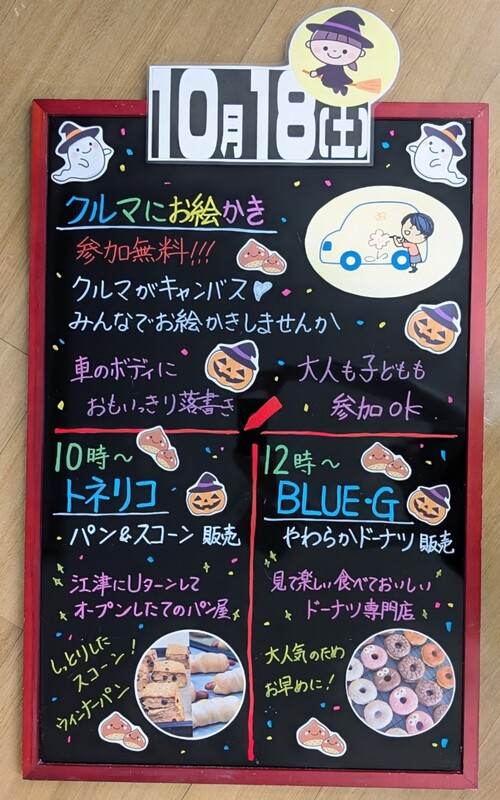 10月18(土)
クルマにお絵かき
参加無料!!!
クルマがキャンバス♡
みんなでお絵かきしませんか
車のボディに
おもいっきり落書き
大人も子どもも
参加ok
10時〜
トネリコ
パン&スコーン 販売
江津にUターンして
オープンしたてのパン屋
しっとりした
スコーン!
ウィンナーパン
12時〜
BLUE・G
やわらかドーナツ 販売
見て楽しい食べておいしい
ドーナツ専門店
大人気のため
お早めに!